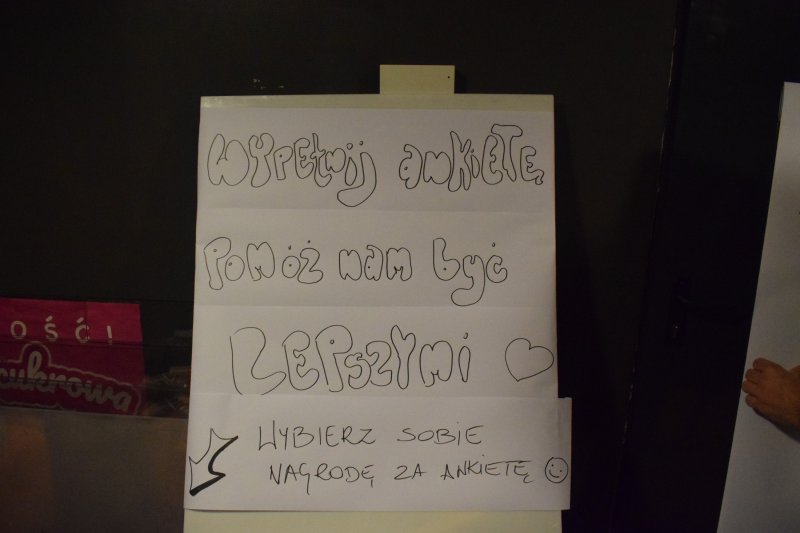 Wypełnij ankietę
Pomóż nam być
LEPszymi
WYBIERZ SOBIE
NAGRODĘ ZA ANKIETĘ
OŚCI
cukrowa